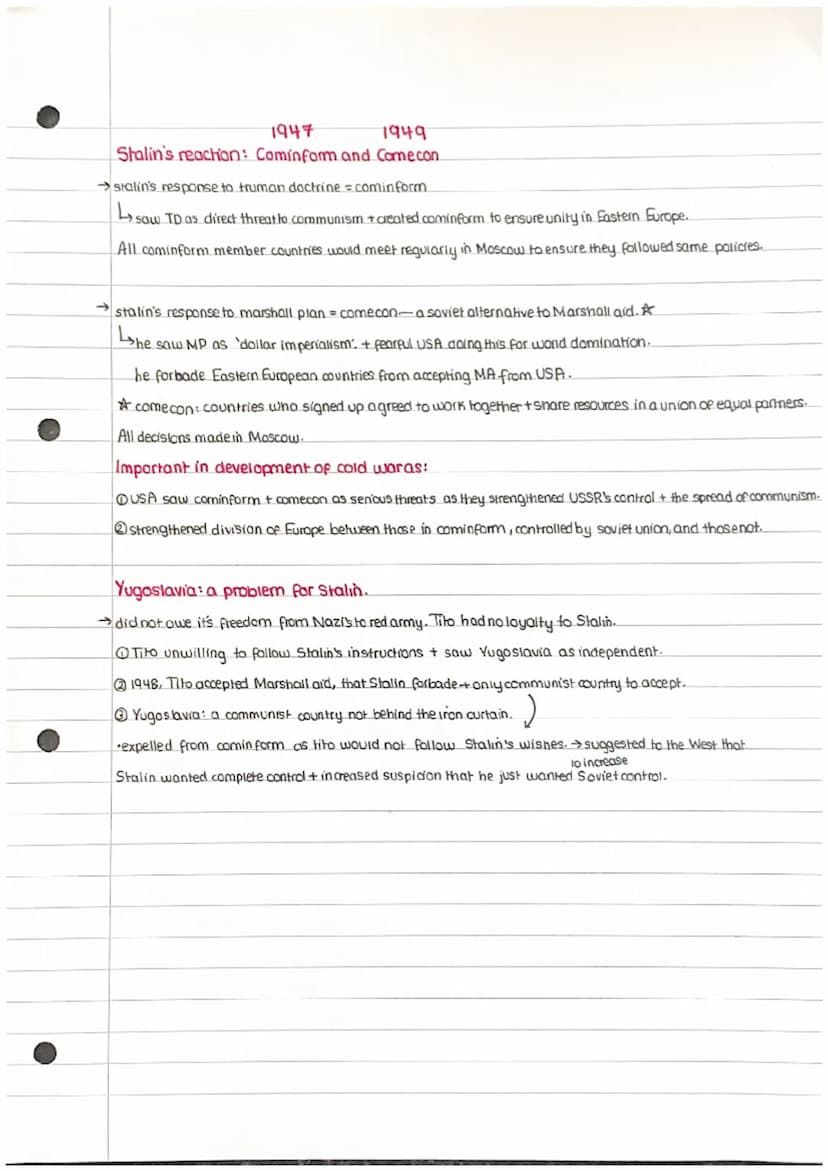 1947 1949
Stalin's reaction: Cominform and Comecon
→ stalin's response to truman doctrine = cominform
↳ saw TD as direct threat to communism + created cominform to ensure unity in Eastern Europe.
All cominform member countries would meet regularly in Moscow to ensure they followed same policies.
→ stalin's response to marshall plan = comecon — a soviet alternative to Marshall aid. ☆
↳ he saw MP as 'dollar imperialism'. + fearful USA doing this for world domination.
he forbade Eastern European countries from accepting MA from USA.
☆ comecon: countries who signed up agreed to work together + share resources in a union of equal partners.
All decisions made in Moscow.
Important in development of cold war as:
① USA saw cominform + comecon as serious threats as they strengthened USSR's control + the spread of communism.
② strengthened division of Europe between those in cominform, controlled by soviet union, and those not.
Yugoslavia: a problem for Stalin.
→ did not owe it's freedom from Nazi's to red army. Tito had no loyalty to Stalin.
① Tito unwilling to follow Stalin's instructions + saw Yugoslavia as independent.
② 1948, Tito accepted Marshall aid, that Stalin forbade → only communist country to accept.
③ Yugoslavia: a communist country not behind the iron curtain.
•expelled from cominform as tito would not follow Stalin's wishes. → suggested to the West that
to increase
Stalin wanted complete control + increased suspicion that he just wanted Soviet control.